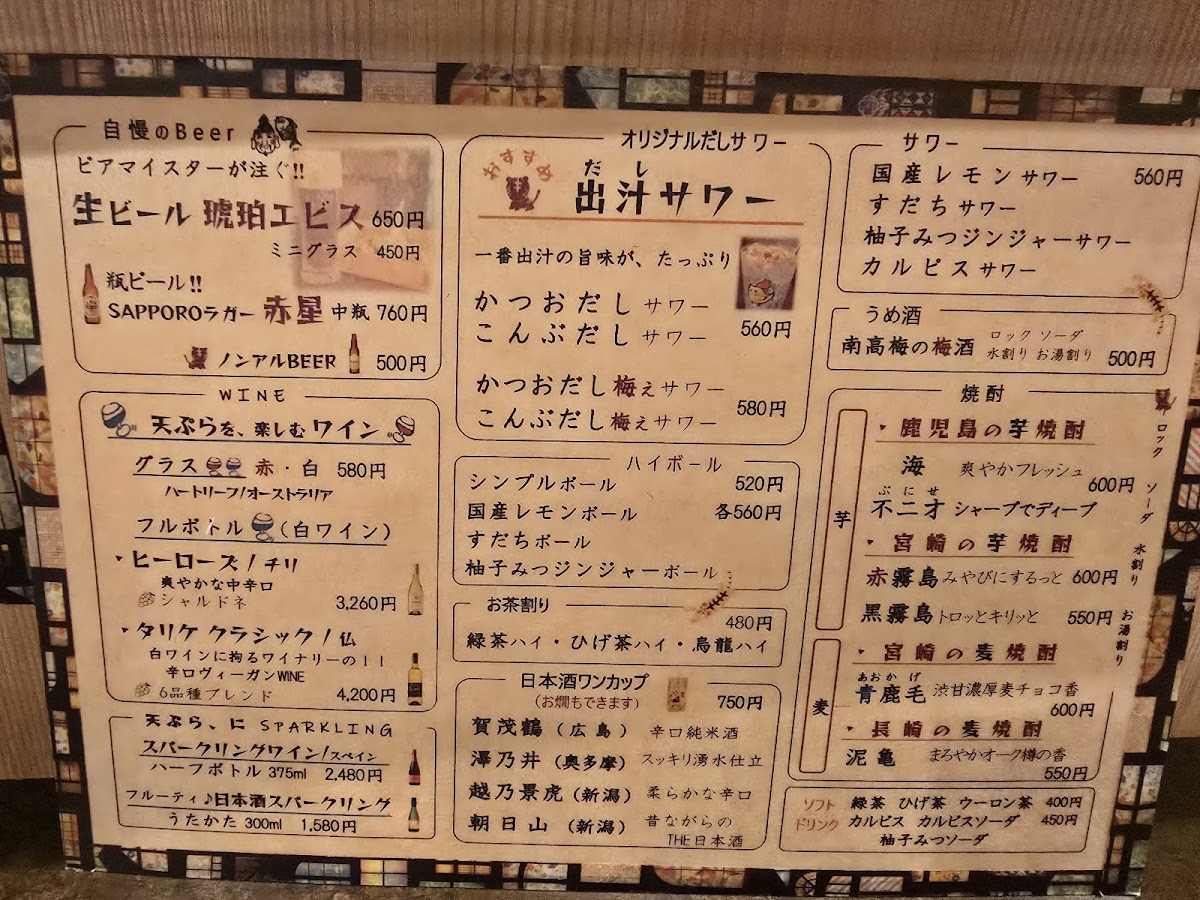 自慢のBeer
ビアマイスターが注ぐ!!
生ビール 琥珀エビス 650円
ミニグラス 450円
瓶ビール!!
SAPPOROラガー 赤星 中瓶 760円
ノンアルBEER 500円
WINE
天ぷらを、楽しむワイン
グラス 赤・白 580円
ハートリーフ/オーストラリア
フルボトル (白ワイン)
ヒーローズ / チリ
爽やかな中辛口
シャルドネ 3,260円
タリケ クラシック / 仏
白ワインに拘るワイナリーの!!
辛口ヴィーガンWINE
6品種ブレンド 4,200円
天ぷら、に SPARKLING
スパークリングワイン/スペイン
ハーフボトル 375ml 2,480円
フルーティ♪日本酒スパークリング
うたかた 300ml 1,580円
オリジナルだしサワー
おすすめ
だし
出汁サワー
一番出汁の旨味が、たっぷり
かつおだし サワー
こんぶだし サワー 560円
かつおだし梅ぇサワー
こんぶだし梅ぇサワー 580円
ハイボール
シンプルボール 520円
国産レモンボール 各560円
すだちボール
柚子みつジンジャーボール
お茶割り
480円
緑茶ハイ・ひげ茶ハイ・烏龍ハイ
日本酒ワンカップ
(お燗もできます) 750円
賀茂鶴 (広島) 辛口純米酒
澤乃井 (奥多摩) スッキリ湧水仕立
越乃景虎 (新潟) 柔らかな辛口
朝日山 (新潟) 昔ながらの
THE日本酒
サワー
国産レモンサワー 560円
すだちサワー
柚子みつジンジャーサワー
カルピスサワー
うめ酒
南高梅の梅酒 ロック ソーダ
水割り お湯割り 500円
焼酎
ロック ソーダ 水割り お湯割り
芋
鹿児島の芋焼酎
海 爽やかフレッシュ
600円
ぶにせ
不二才 シャープでディープ
宮崎の芋焼酎
赤霧島 みやびにするっと 600円
黒霧島 トロッとキリッと 550円
麦
宮崎の麦焼酎
あおかげ
青鹿毛 渋甘濃厚麦チョコ香
600円
長崎の麦焼酎
泥亀 まろやかオーク樽の香
550円
ソフト
ドリンク
緑茶 ひげ茶 ウーロン茶 400円
カルピス カルピスソーダ 450円
柚子みつソーダ